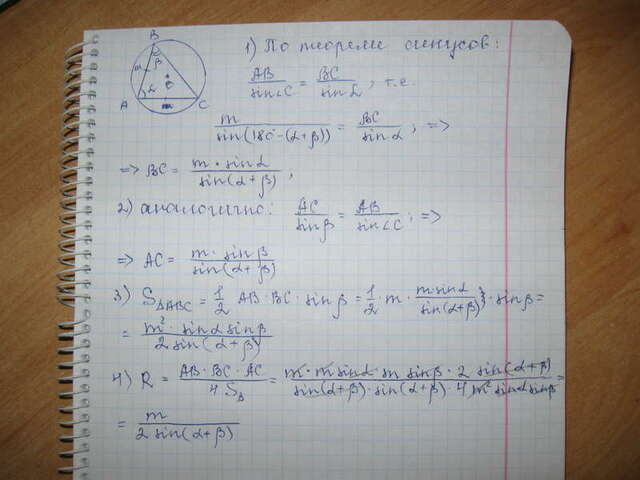 B
m
β
α
O
A
m
C
1) По теореме синусов:
AB/sin∠C = BC/sinα, т.е.
m/sin(180-(α+β)) = BC/sinα; =>
=> BC = m·sinα/sin(α+β),
2) аналогично: AC/sinβ = AB/sin∠C; =>
=> AC = m·sinβ/sin(α+β)
3) S△ABC = 1/2 AB·BC·sinβ = 1/2·m·m·sinα/sin(α+β)·sinβ =
= m²·sinα sinβ/2sin(α+β)
4) R = AB·BC·AC/4S△ = m·m sinα·m sinβ·2 sin(α+β)/sin(α+β)·sin(α+β)·4m² sinα sinβ =
= m/2 sin(α+β)